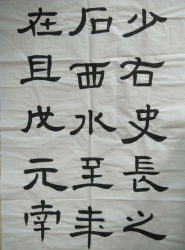 少右史長之
石西水至丰
在且戊元南